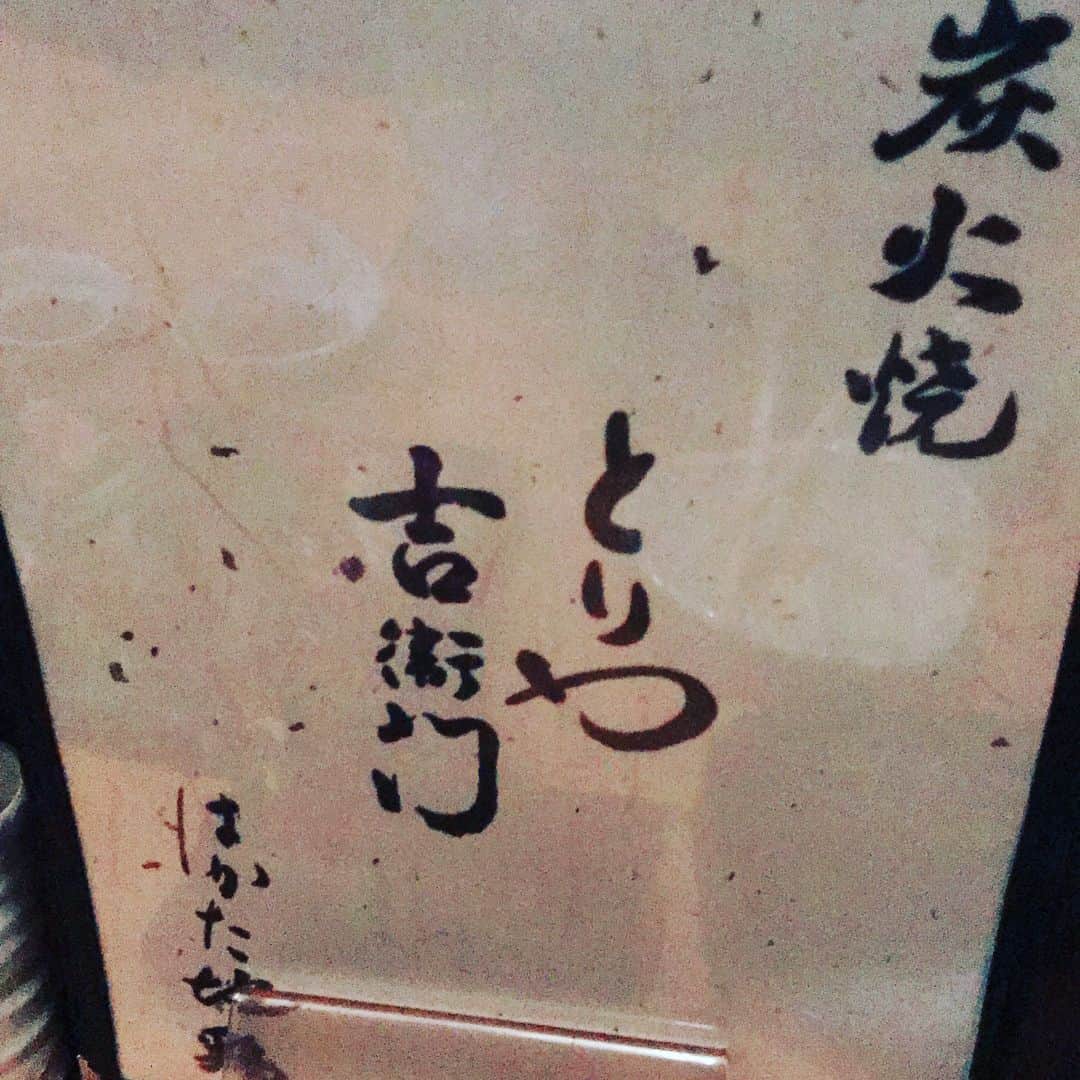 炭火焼
とりや
吉衛門
はかた地